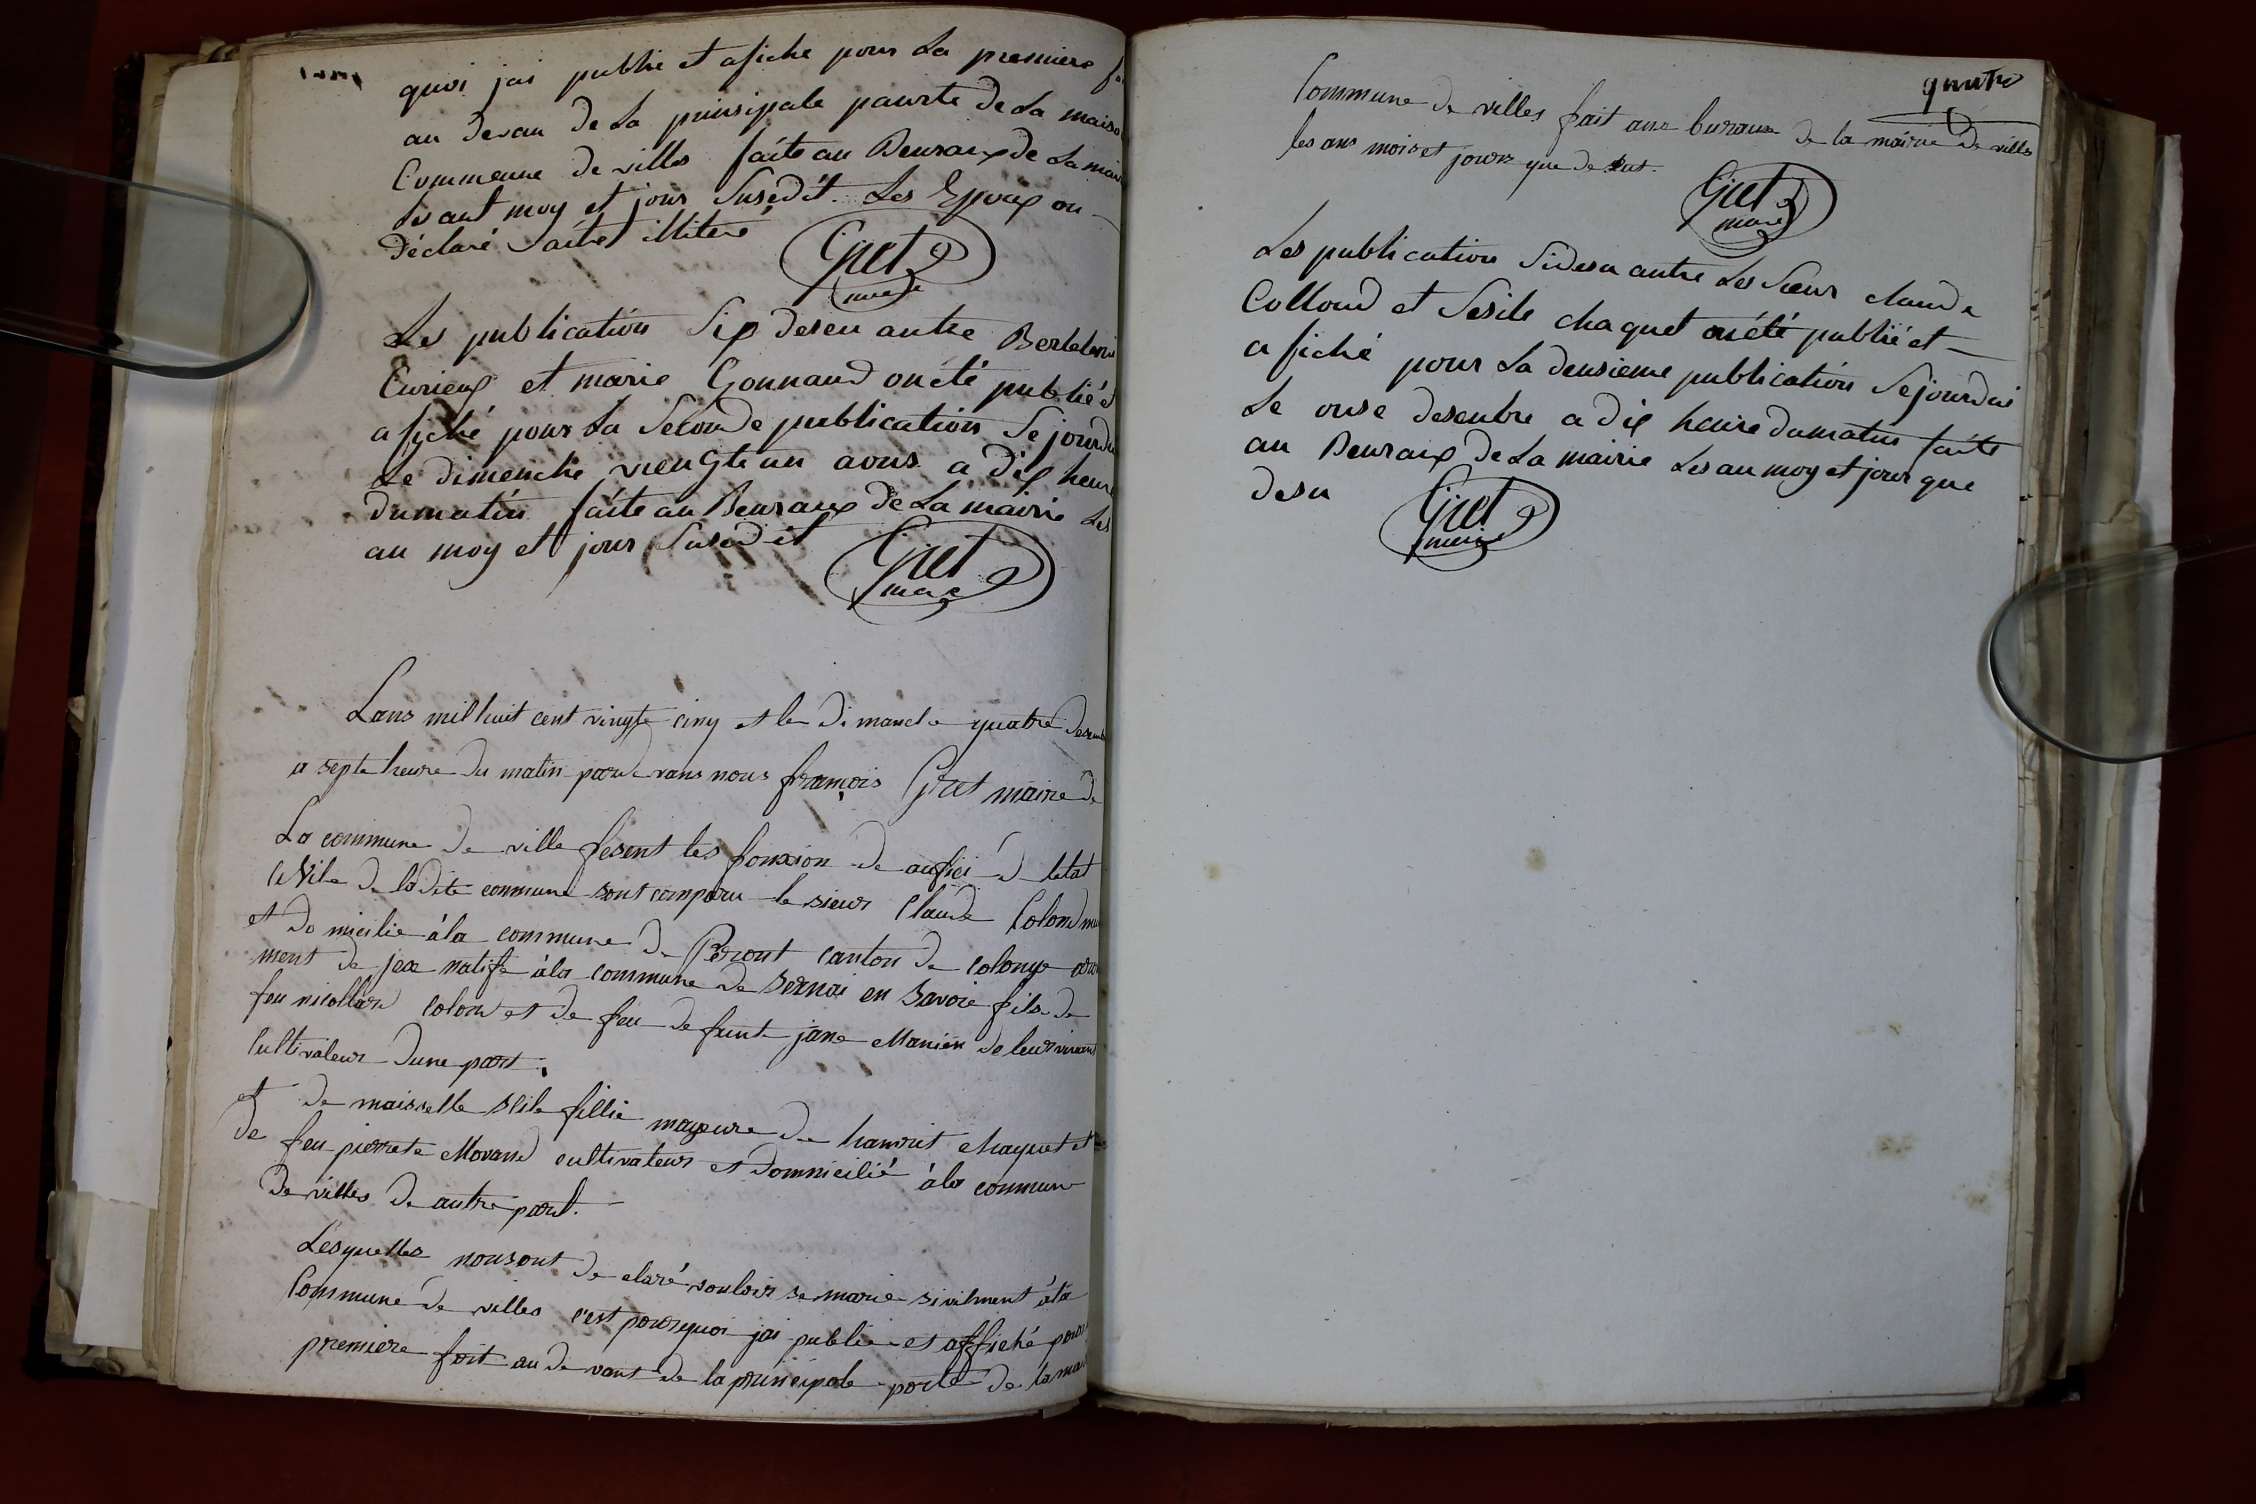 quoi jai publie et afiche pour La premiere
au devau de La prinsipale paurte de La maiso
Commeune de villes faite au Beuraux de La mair
Levant moy et jour Susedit. Les Epoux on
Déclaré aitre illitere
Gret
maire
Les publication Six deseu autre Berteleni
Curieux et marie Gonnaud on été publié et
afiché pour La Seconde publication Se jourdui
Le dimenche viengte un aous a dix heure
dumatin faite au Beuraux de La mairie Les
au moy et jour Susedit
Gret
maire
Lans mil huit cent vingte cinq et le dimanche quatre desem
a septe heure du matin pardevans nous françois Gret maire de
La commune de ville fesent les fonxion de aufici d letat
Civile de ladite commune sont comparu le sieur Claude Colond
et domicilie à la commune de Peront canton de colonge aron
ment de jex natife à la commune de Sernai en Savoie fils de
feu nicollard Colond et de feu defunt jane Manien de leur vivant
Cultivateur dune part,
et de maiselle Seile fillie mageure de hanrit chaquet et
de feu pierrete Morand cultivateur et domnicilié à la commune
de villes de autre part.
Lesquelles nousont declaré vouloir se marie sivilment à la
Commune de villes c'est pourquoi jai publie et affiché pour
premiere foit au devant de la principale porte de la mai
quatre
Commune de villes fait aux buraux de la mairie de villes
les ans mois et jours que desut.
Gret
maire
Les publication Sidesu autre Les Sieur claude
Colloud et Sesile chaquet on été publié et
afiché pour La deusieme publication Sejourdui
Le onse desenbre a dix heure dumatin faite
au Beuraux de La mairie Les au moy et jour que
desu
Gret
maire